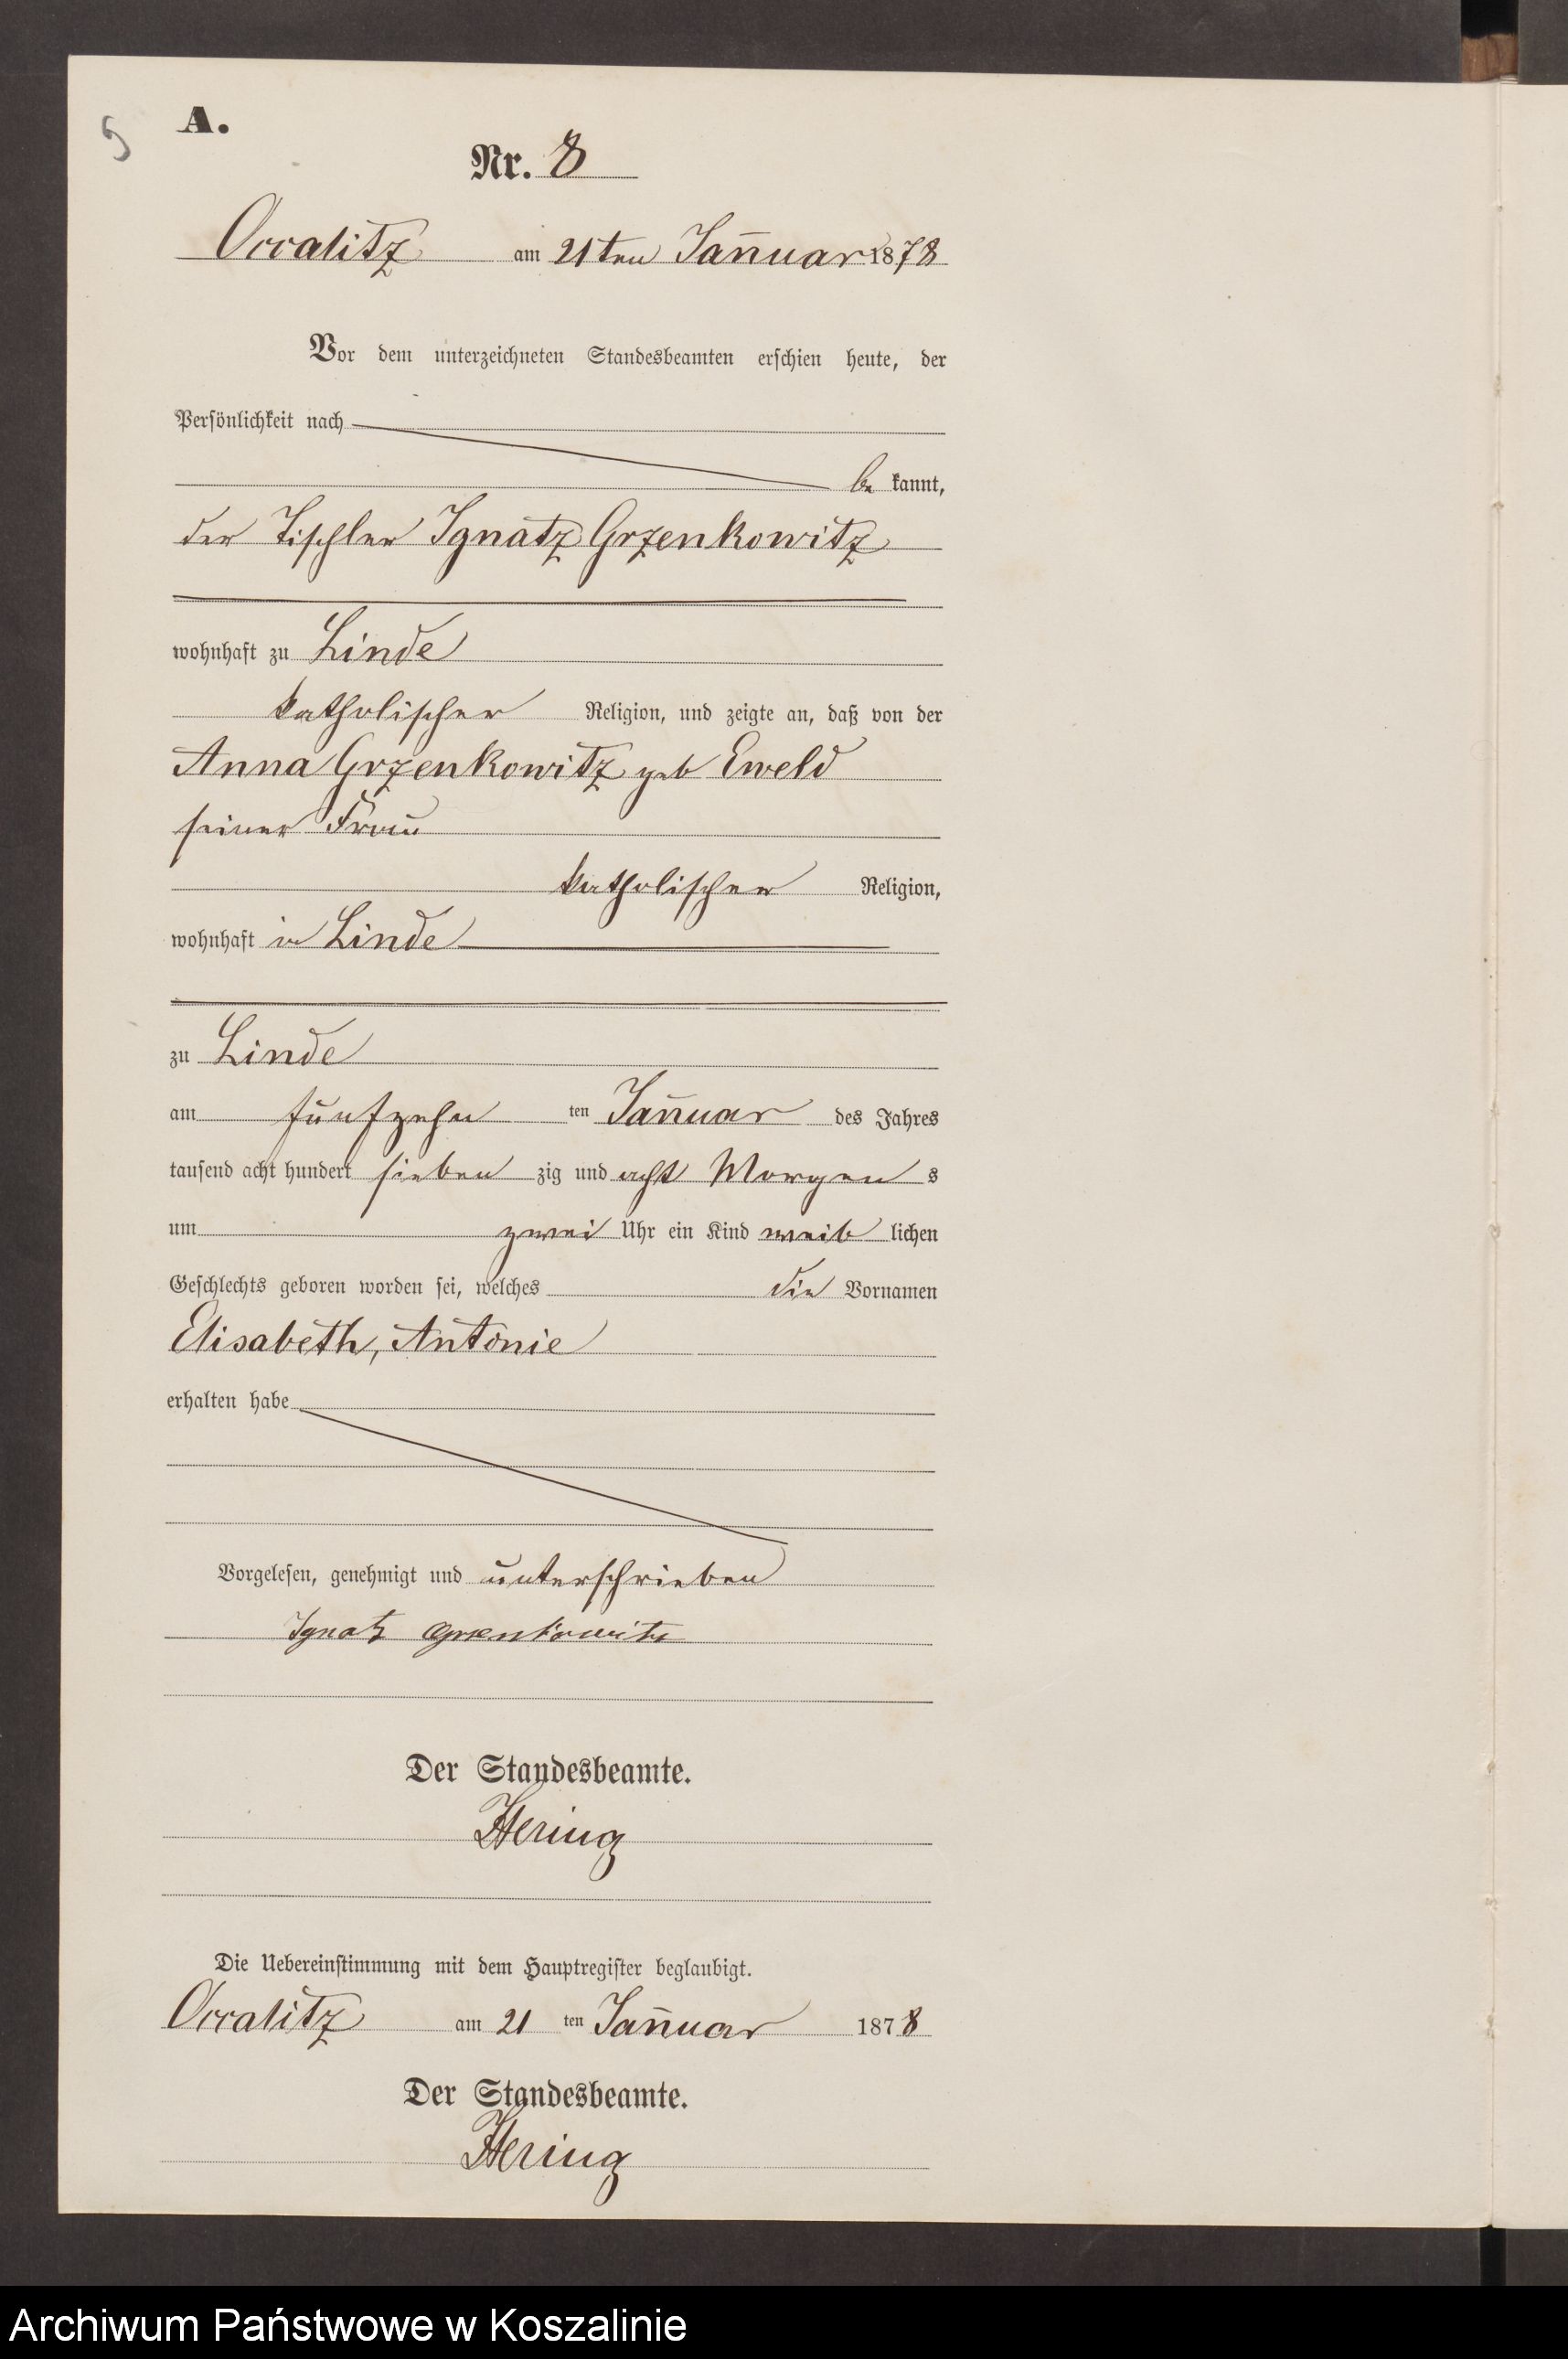 9
A.
Nr. 8
Occalitz am 21ten Jan̄uar 1878
Vor dem unterzeichneten Standesbeamten erschien heute, der
Persönlichkeit nach
be kannt,
der Tischler Ignatz Grzenkowitz
wohnhaft zu Linde
katholischer Religion, und zeigte an, daß von der
Anna Grzenkowitz geb Eweld
seiner Frau
katholischer Religion,
wohnhaft in Linde
zu Linde
am fünfzehn ten Jan̄uar des Jahres
tausend acht hundert sieben zig und acht Morgen s
um zwei Uhr ein Kind weib lichen
Geschlechts geboren worden sei, welches die Vornamen
Elisabeth, Antonie
erhalten habe
Vorgelesen, genehmigt und unterschrieben
Ignatz Grzenkowitz
Der Standesbeamte.
Hering
Die Uebereinstimmung mit dem Hauptregister beglaubigt.
Occalitz am 21 ten Jan̄uar 1878
Der Standesbeamte.
Hering
Archiwum Państwowe w Koszalinie